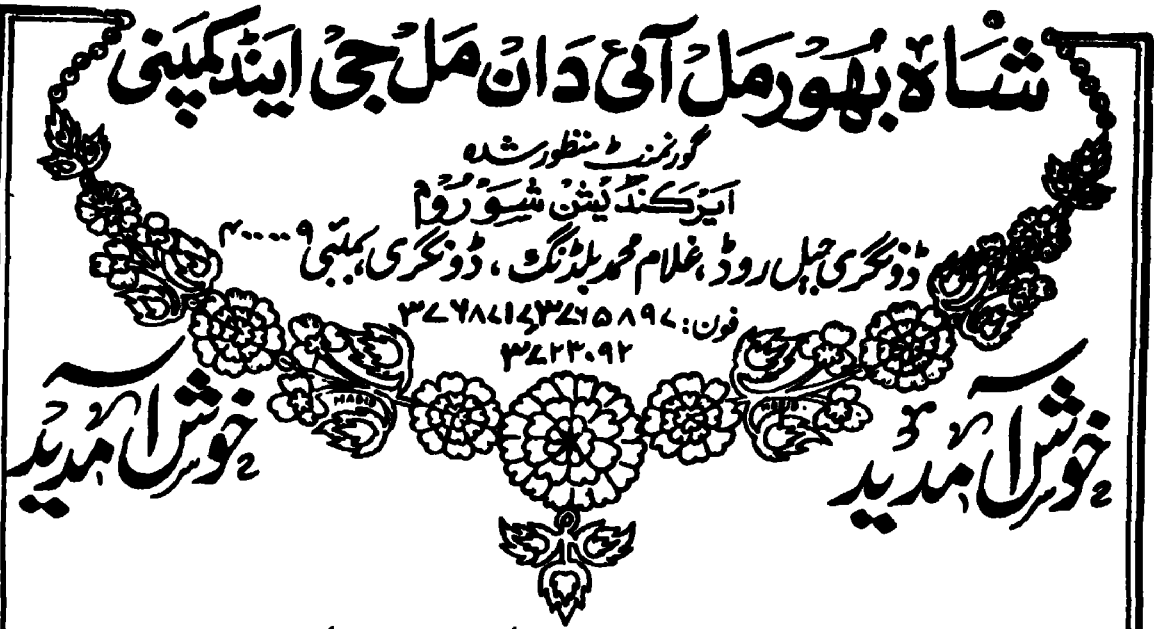 شاہ بھور مل آئی دان مل جی اینڈ کمپنی
گورنمنٹ منظور شدہ
ایرکنڈیشن شوروم
ڈونگری جیل روڈ، غلام محمد بلڈنگ، ڈونگری، بمبئی ۴۰۰۰۰۹
فون: ۳۷۶۵۸۹۷، ۳۷۶۸۷۱۷
۳۷۲۳۰۹۲
خوش آمدید
خوش آمدید